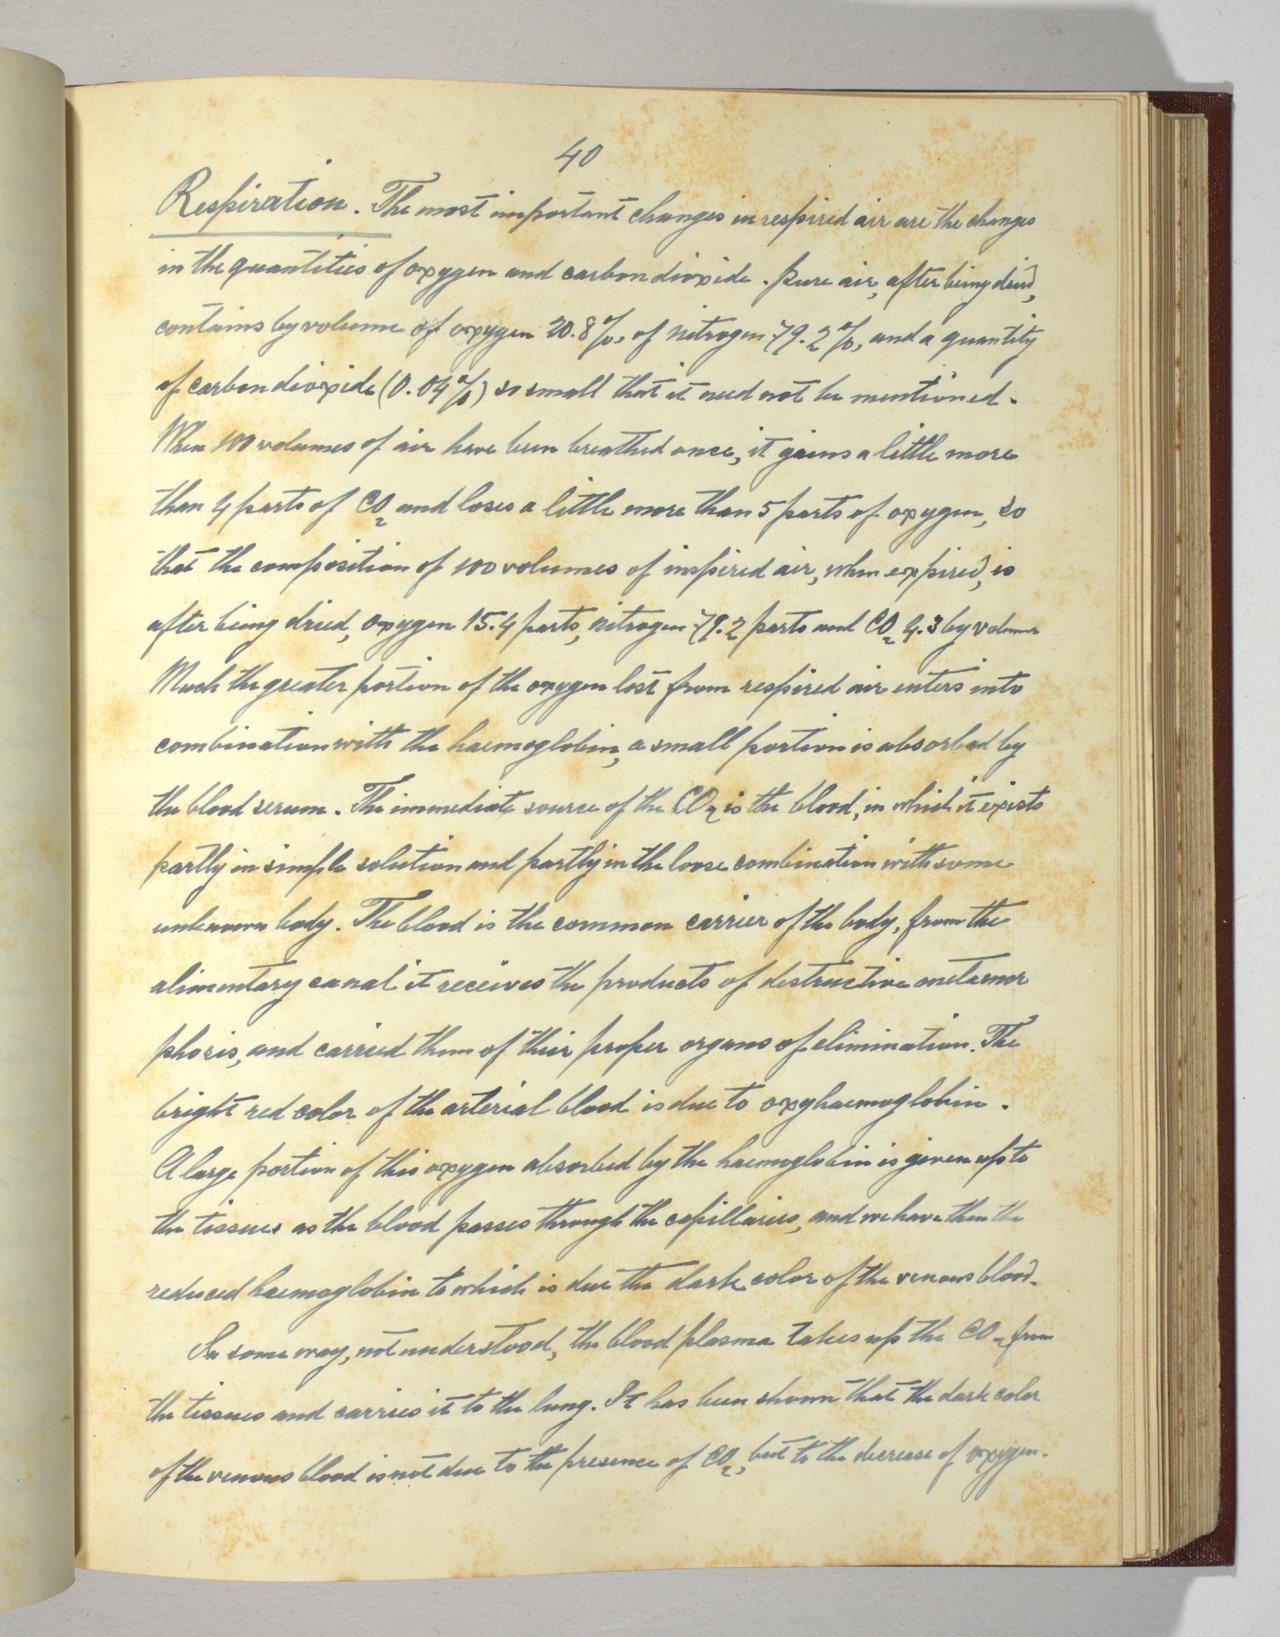 40
Respiration. The most important changes in respired air are the changes
in the quantities of oxygen and carbon dioxide. Pure air, after being dried,
contains by volume of oxygen 20.8%, of nitrogen 79.2%, and a quantity
of carbon dioxide (0.04%) so small that it need not be mentioned.
When 100 volumes of air have been breathed once, it gains a little more
than 4 parts of CO2 and loses a little more than 5 parts of oxygen, so
that the composition of 100 volumes of inspired air, when expired, is
after being dried, oxygen 15.4 parts, nitrogen 79.2 parts and CO2 4.3 by volume
Much the greater portion of the oxygen lost from respired air enters into
combination with the haemoglobin, a small portion is absorbed by
the blood serum. The immediate source of the CO2 is the blood, in which it exists
partly in simple solution and partly in the loose combination with some
unknown body. The blood is the common carrier of the body, from the
alimentary canal it receives the products of destructive metamor
phosis, and carried them of their proper organs of elimination. The
bright red color of the arterial blood is due to oxyhaemoglobin.
A large portion of this oxygen absorbed by the haemoglobin is given up to
the tissues as the blood passes through the capillaries, and we have then the
reduced haemoglobin to which is due the dark color of the venous blood.
In some way, not understood, the blood plasma takes up the CO2 from
the tissues and carries it to the lung. It has been shown that the dark color
of the venous blood is not due to the presence of CO2, but to the decrease of oxygen.